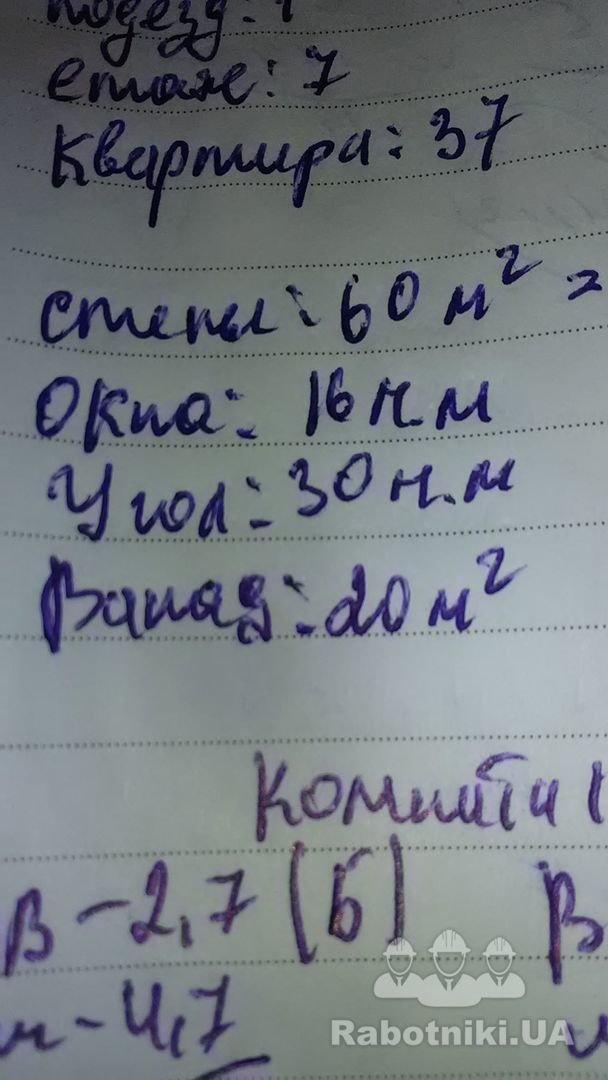 подезд: 1
етаж: 7
Квартира: 37
стены: 60 м² =
Окна: 16 п.м
Угол: 30 п.м
Ванад: 20 м²
комнати 1
В - 2,7 (Б) В
- 4,7
Rabotniki.UA